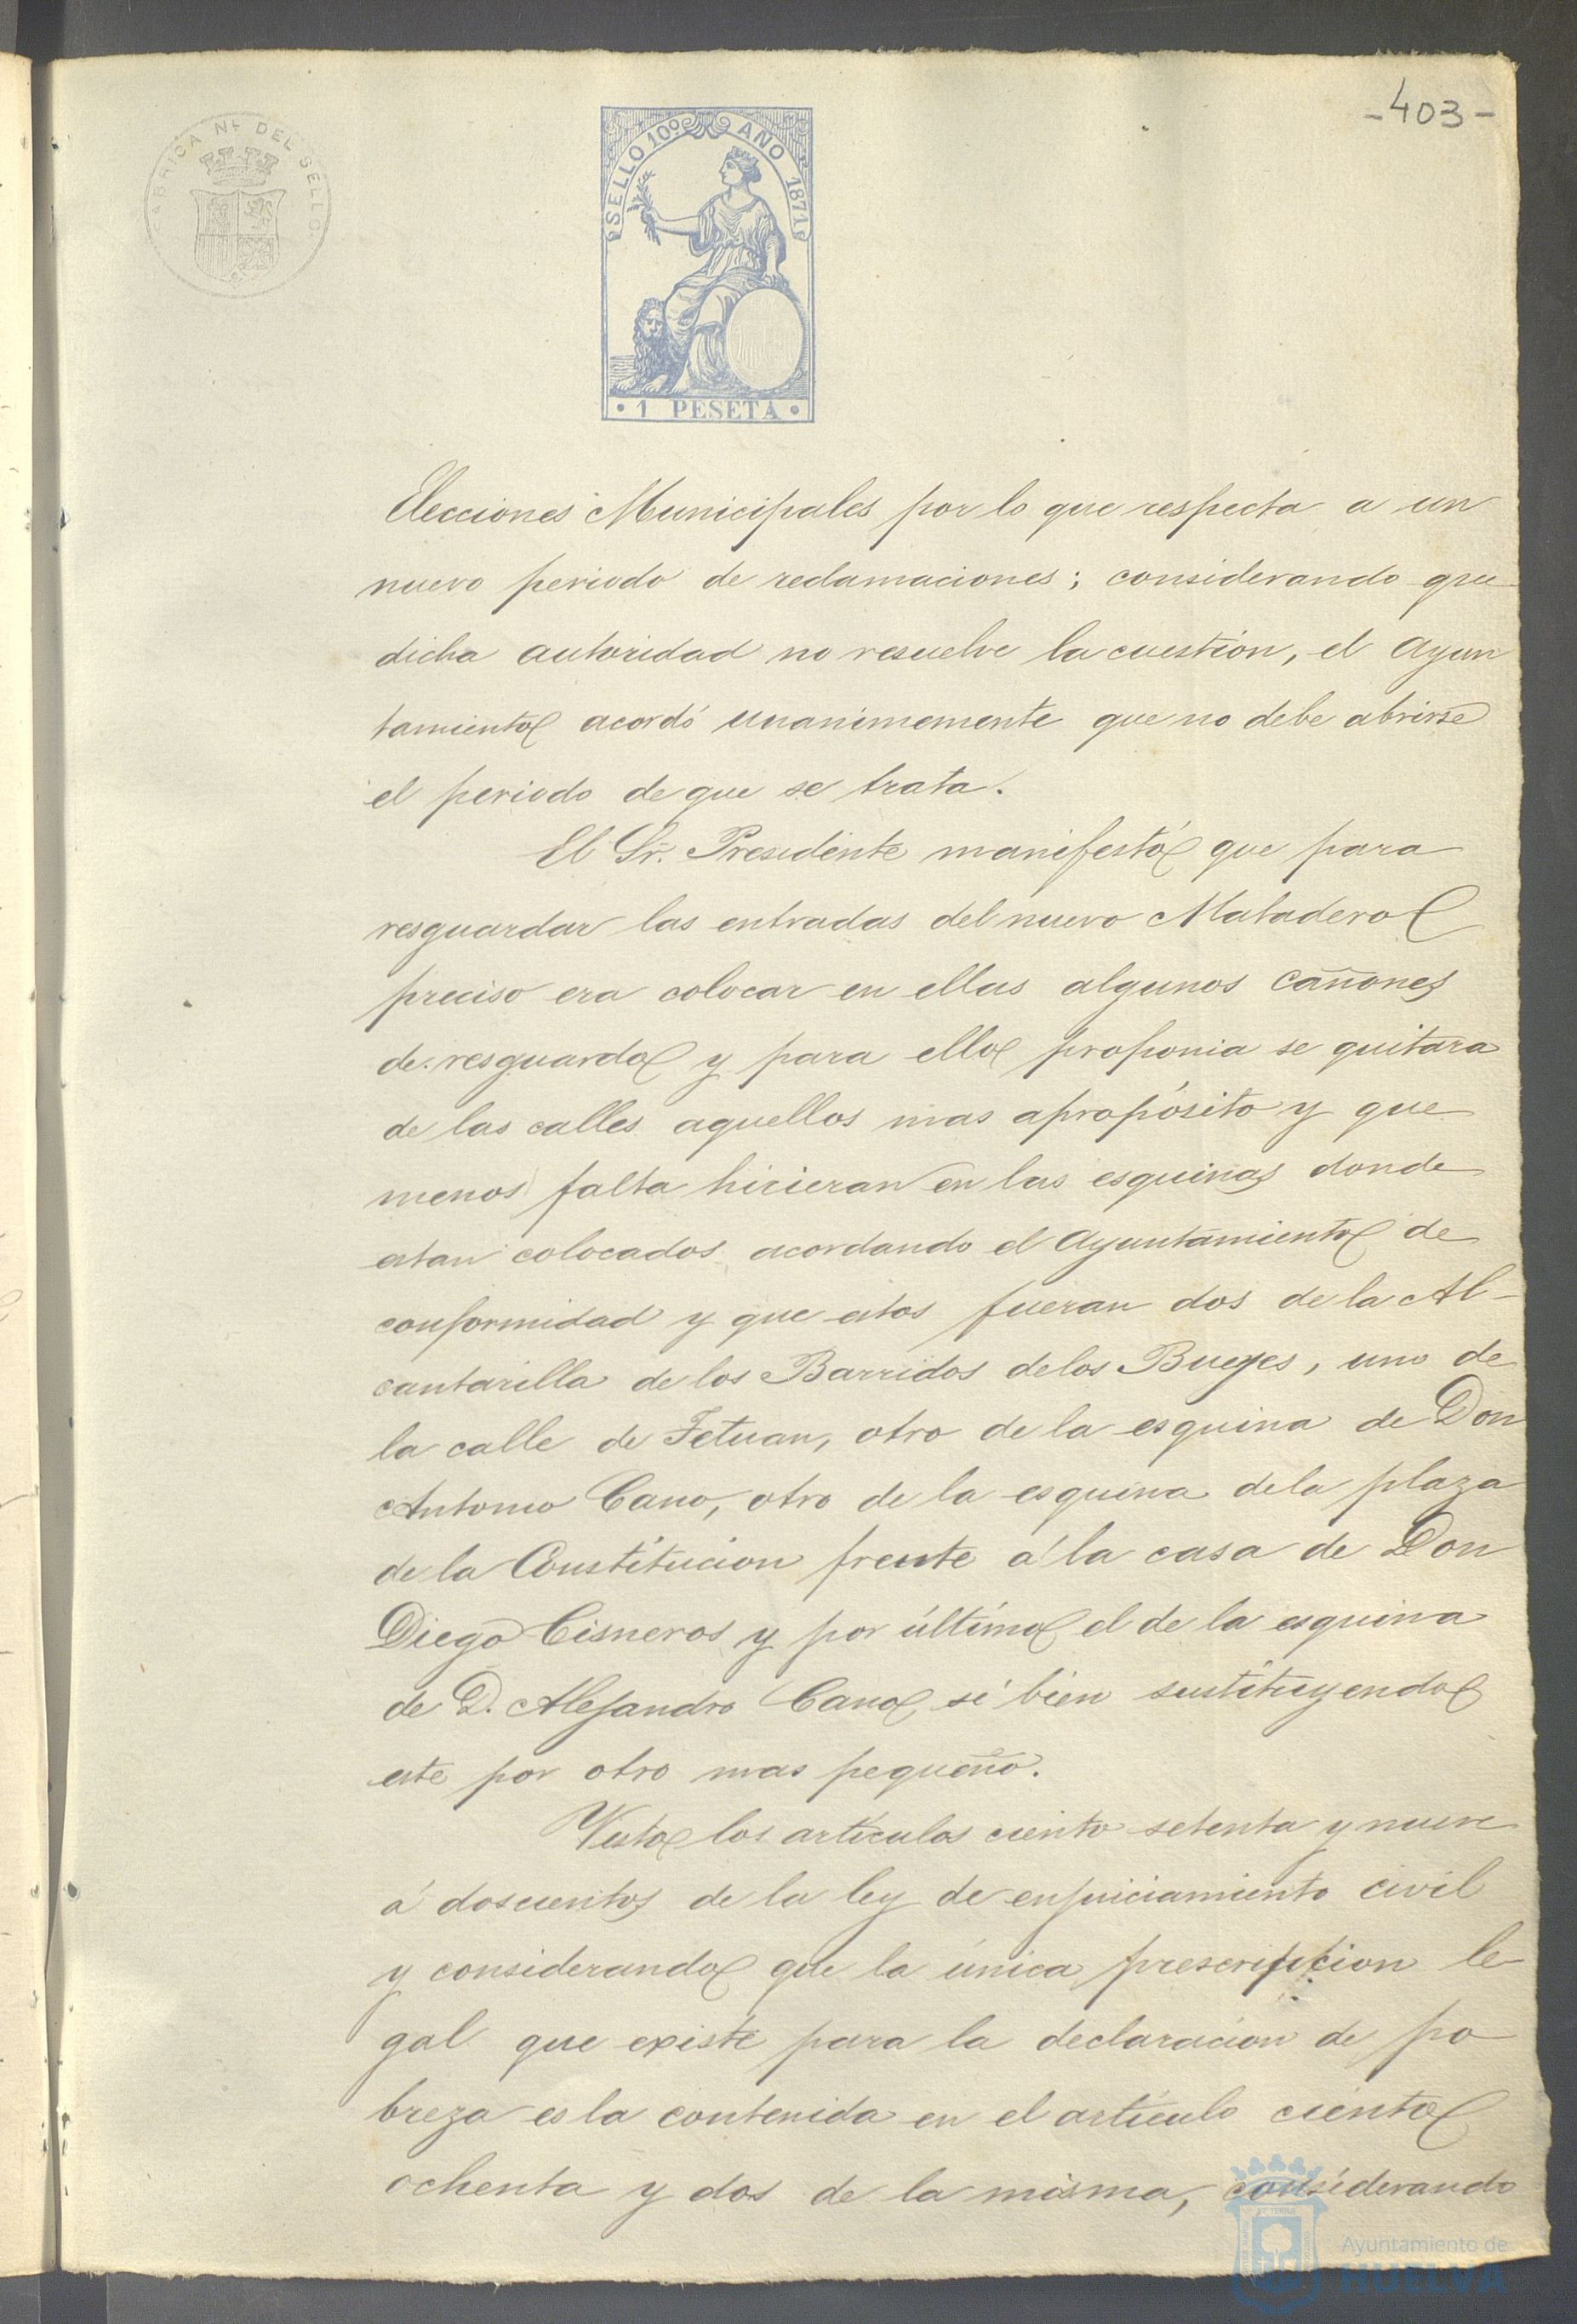 -403-
FABRICA Nl. DEL SELLO
SELLO 10º AÑO 1871
1 PESETA
Elecciones Municipales por lo que respecta a un
nuevo periodo de reclamaciones; considerando que
dicha autoridad no resuelve la cuestión, el Ayun
tamiento acordó unanimemente que no debe abrirse
el periodo de que se trata.
El Sr. Presidente manifestó que para
resguardar las entradas del nuevo Matadero
preciso era colocar en ellas algunos cañones
de resguardo y para ello proponia se quitara
de las calles aquellos mas apropósito y que
menos falta hicieran en las esquinas donde
estan colocados acordando el Ayuntamiento de
conformidad y que estos fueran dos de la Al-
cantarilla de los Barridos de los Bueyes, uno de
la calle de Tetuan, otro de la esquina de Don
Antonio Cano, otro de la esquina de la plaza
de la Constitucion frente á la casa de Don
Diego Cisneros y por último el de la esquina
de D. Alejandro Cano, si bien sustituyendo
este por otro mas pequeño.
Visto los artículos ciento setenta y nueve
á doscientos de la ley de enjuiciamiento civil
y considerando que la única prescripcion le
gal que existe para la declaracion de po
breza es la contenida en el artículo ciento
ochenta y dos de la misma, considerando
Ayuntamiento de
HUELVA